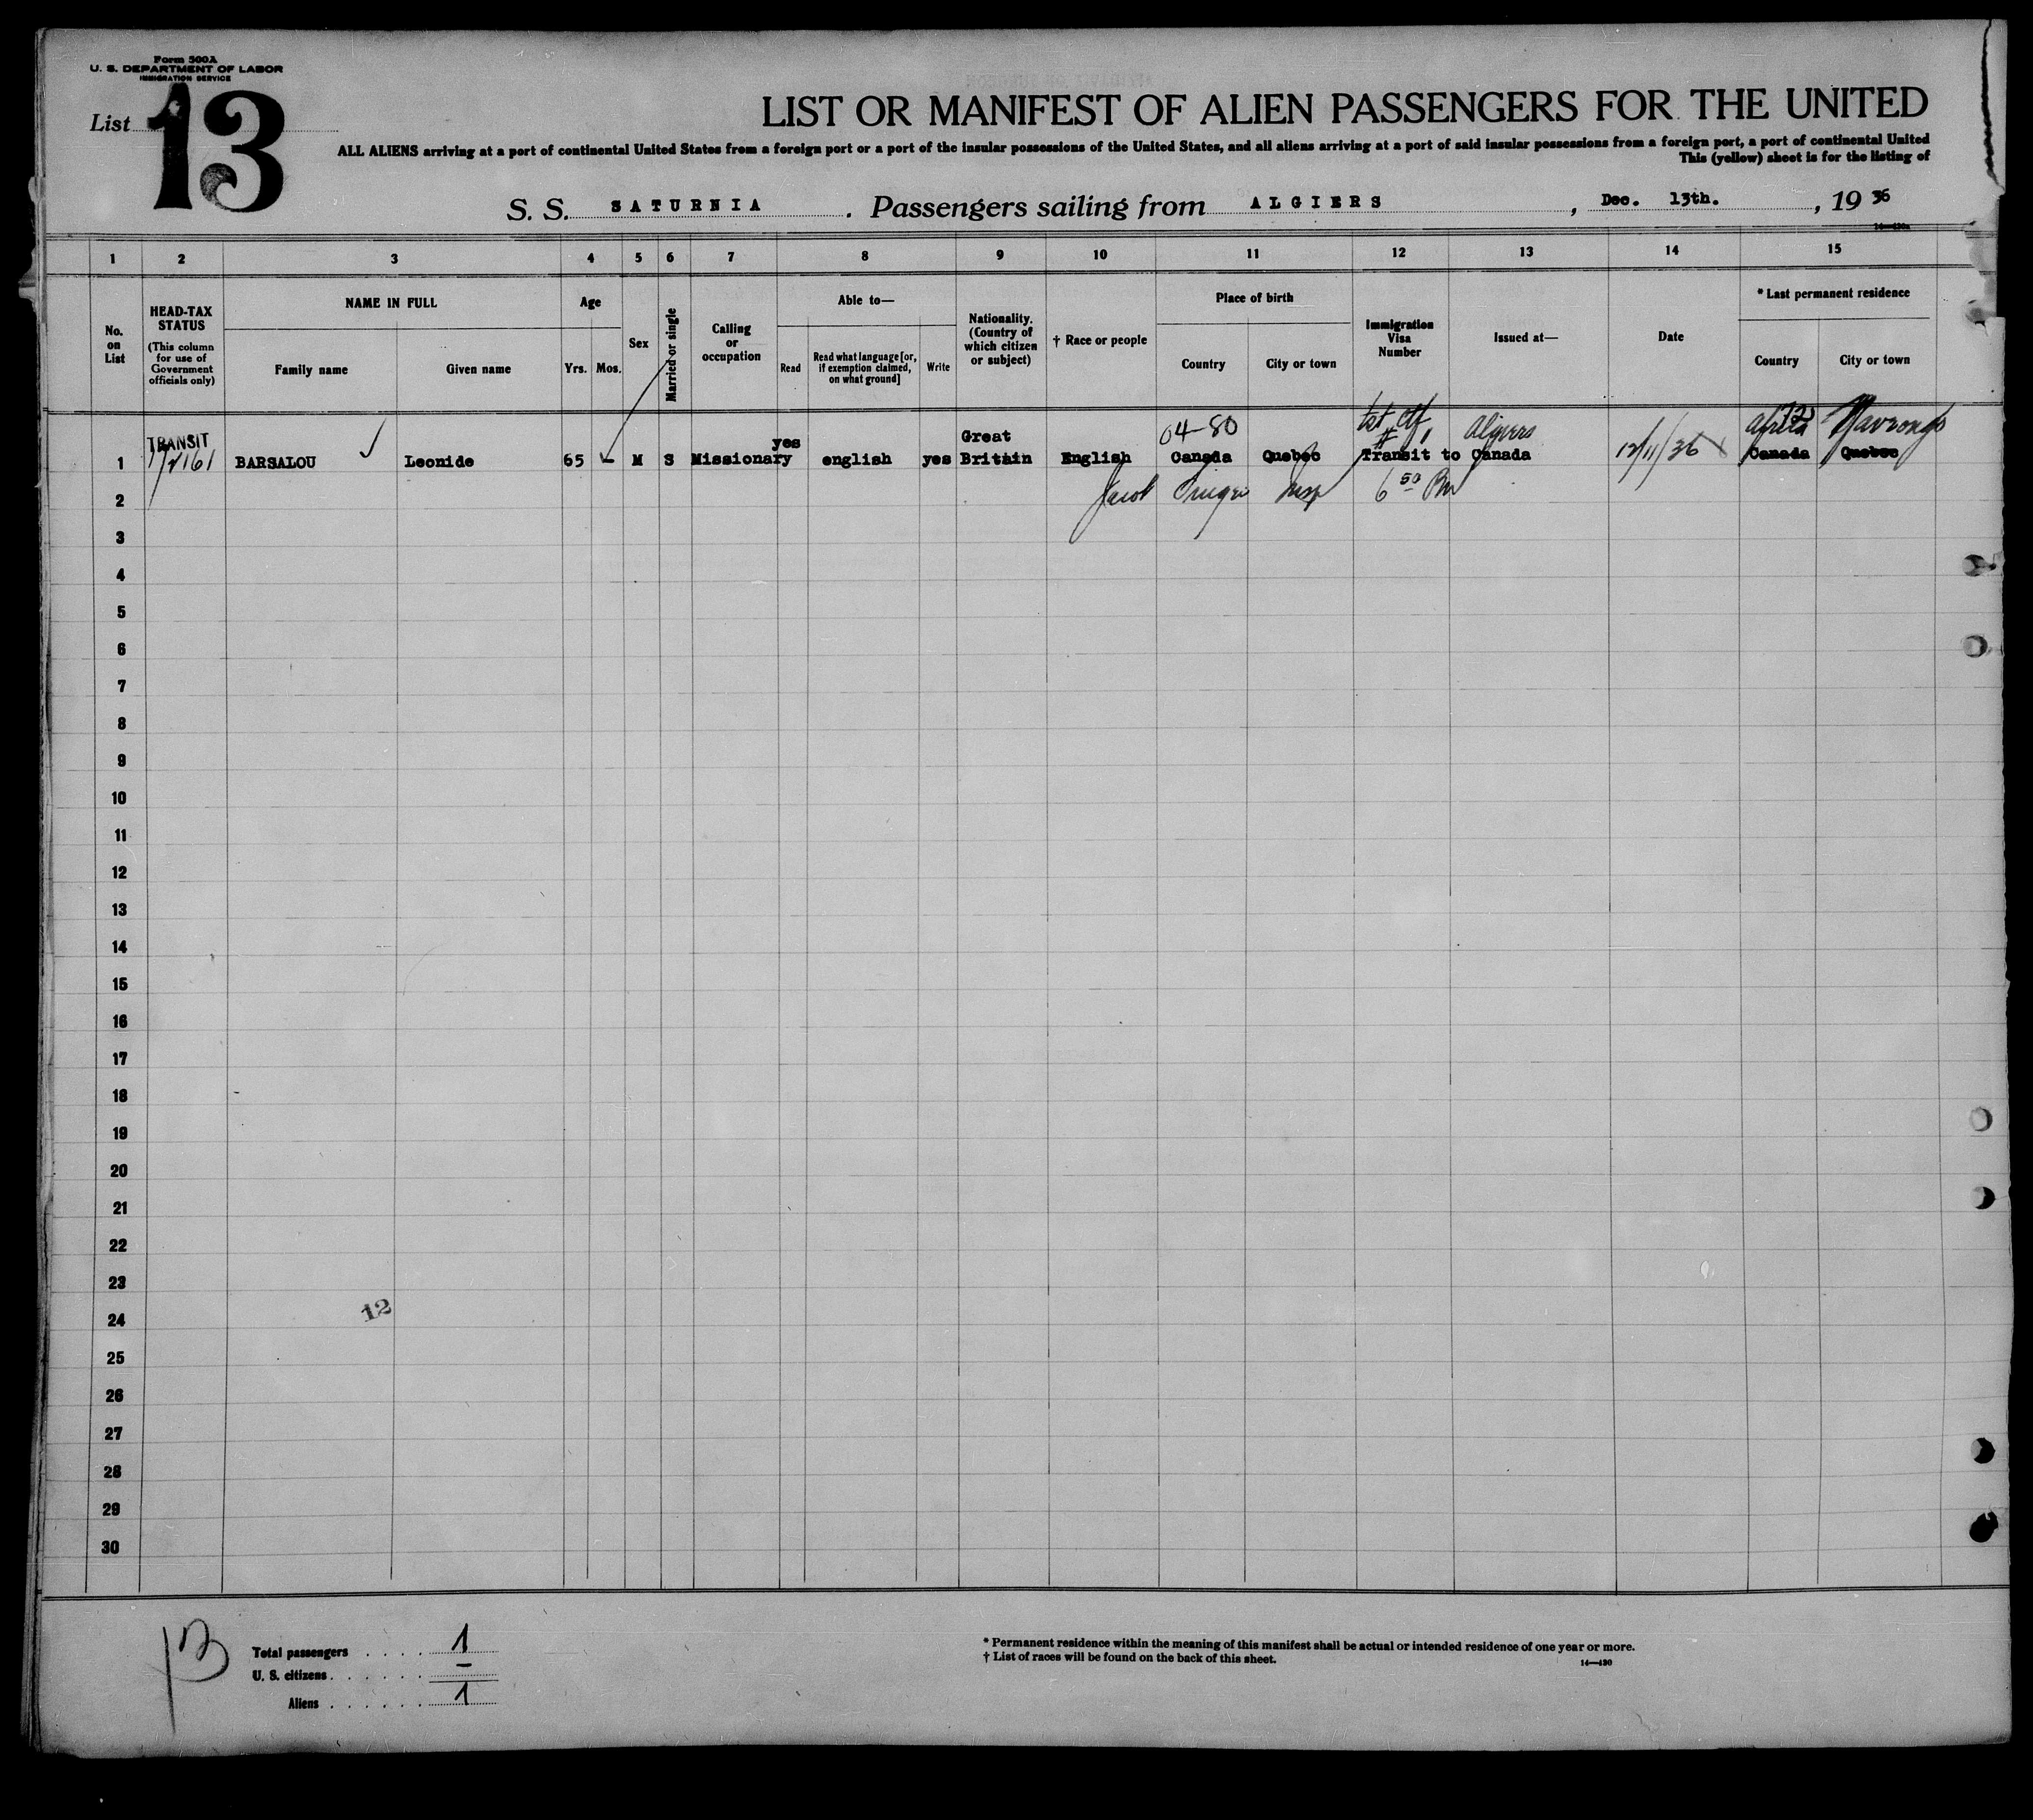 Form 500A
U. S. DEPARTMENT OF LABOR
IMMIGRATION SERVICE
List 13
LIST OR MANIFEST OF ALIEN PASSENGERS FOR THE UNITED
ALL ALIENS arriving at a port of continental United States from a foreign port or a port of the insular possessions of the United States, and all aliens arriving at a port of said insular possessions from a foreign port, a port of continental United
This (yellow) sheet is for the listing of
S. S. SATURNIA . Passengers sailing from ALGIERS , Dec. 13th. , 19 36
1 2 3 4 5 6 7 8 9 10 11 12 13 14 15
No. on List
HEAD-TAX STATUS
(This column for use of Government officials only)
NAME IN FULL
Family name Given name
Age
Yrs. Mos.
Sex
Married or single
Calling or occupation
Able to—
Read
Read what language [or, if exemption claimed, on what ground]
Write
Nationality. (Country of which citizen or subject)
† Race or people
Place of birth
Country City or town
Immigration Visa Number
Issued at—
Date
* Last permanent residence
Country City or town
TRANSIT yes Great 04-80 Algiers Africa
1 BARSALOU Leonide 65 - M S Missionary english yes Britain English Canada Quebec Transit to Canada 12/11/36 Canada Quebec
2 Jacob Insp 6 50 Pm
3
4
5
6
7
8
9
10
11
12
13
14
15
16
17
18
19
20
21
22
23
12
24
25
26
27
28
29
30
13
Total passengers . . . . 1
U. S. citizens . . . . . . –
Aliens . . . . . . 1
* Permanent residence within the meaning of this manifest shall be actual or intended residence of one year or more.
† List of races will be found on the back of this sheet.
14—430